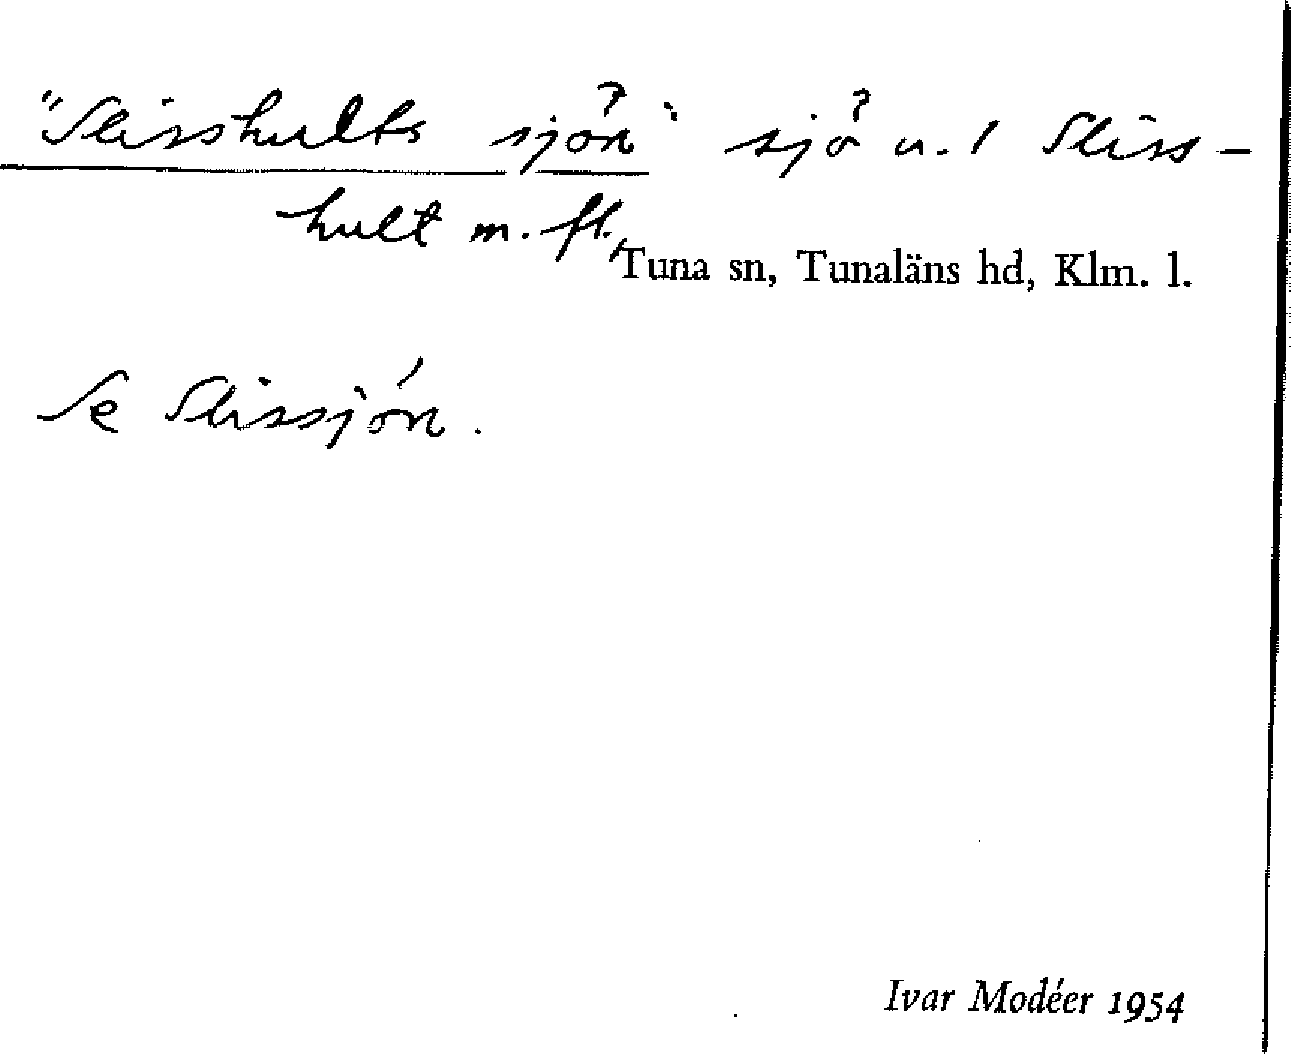 "Slisshults sjön" sjö u. 1 Sliss-
hult m. fl.,
Tuna sn, Tunaläns hd, Klm. l.
Se Slissjön.
Ivar Modéer 1954